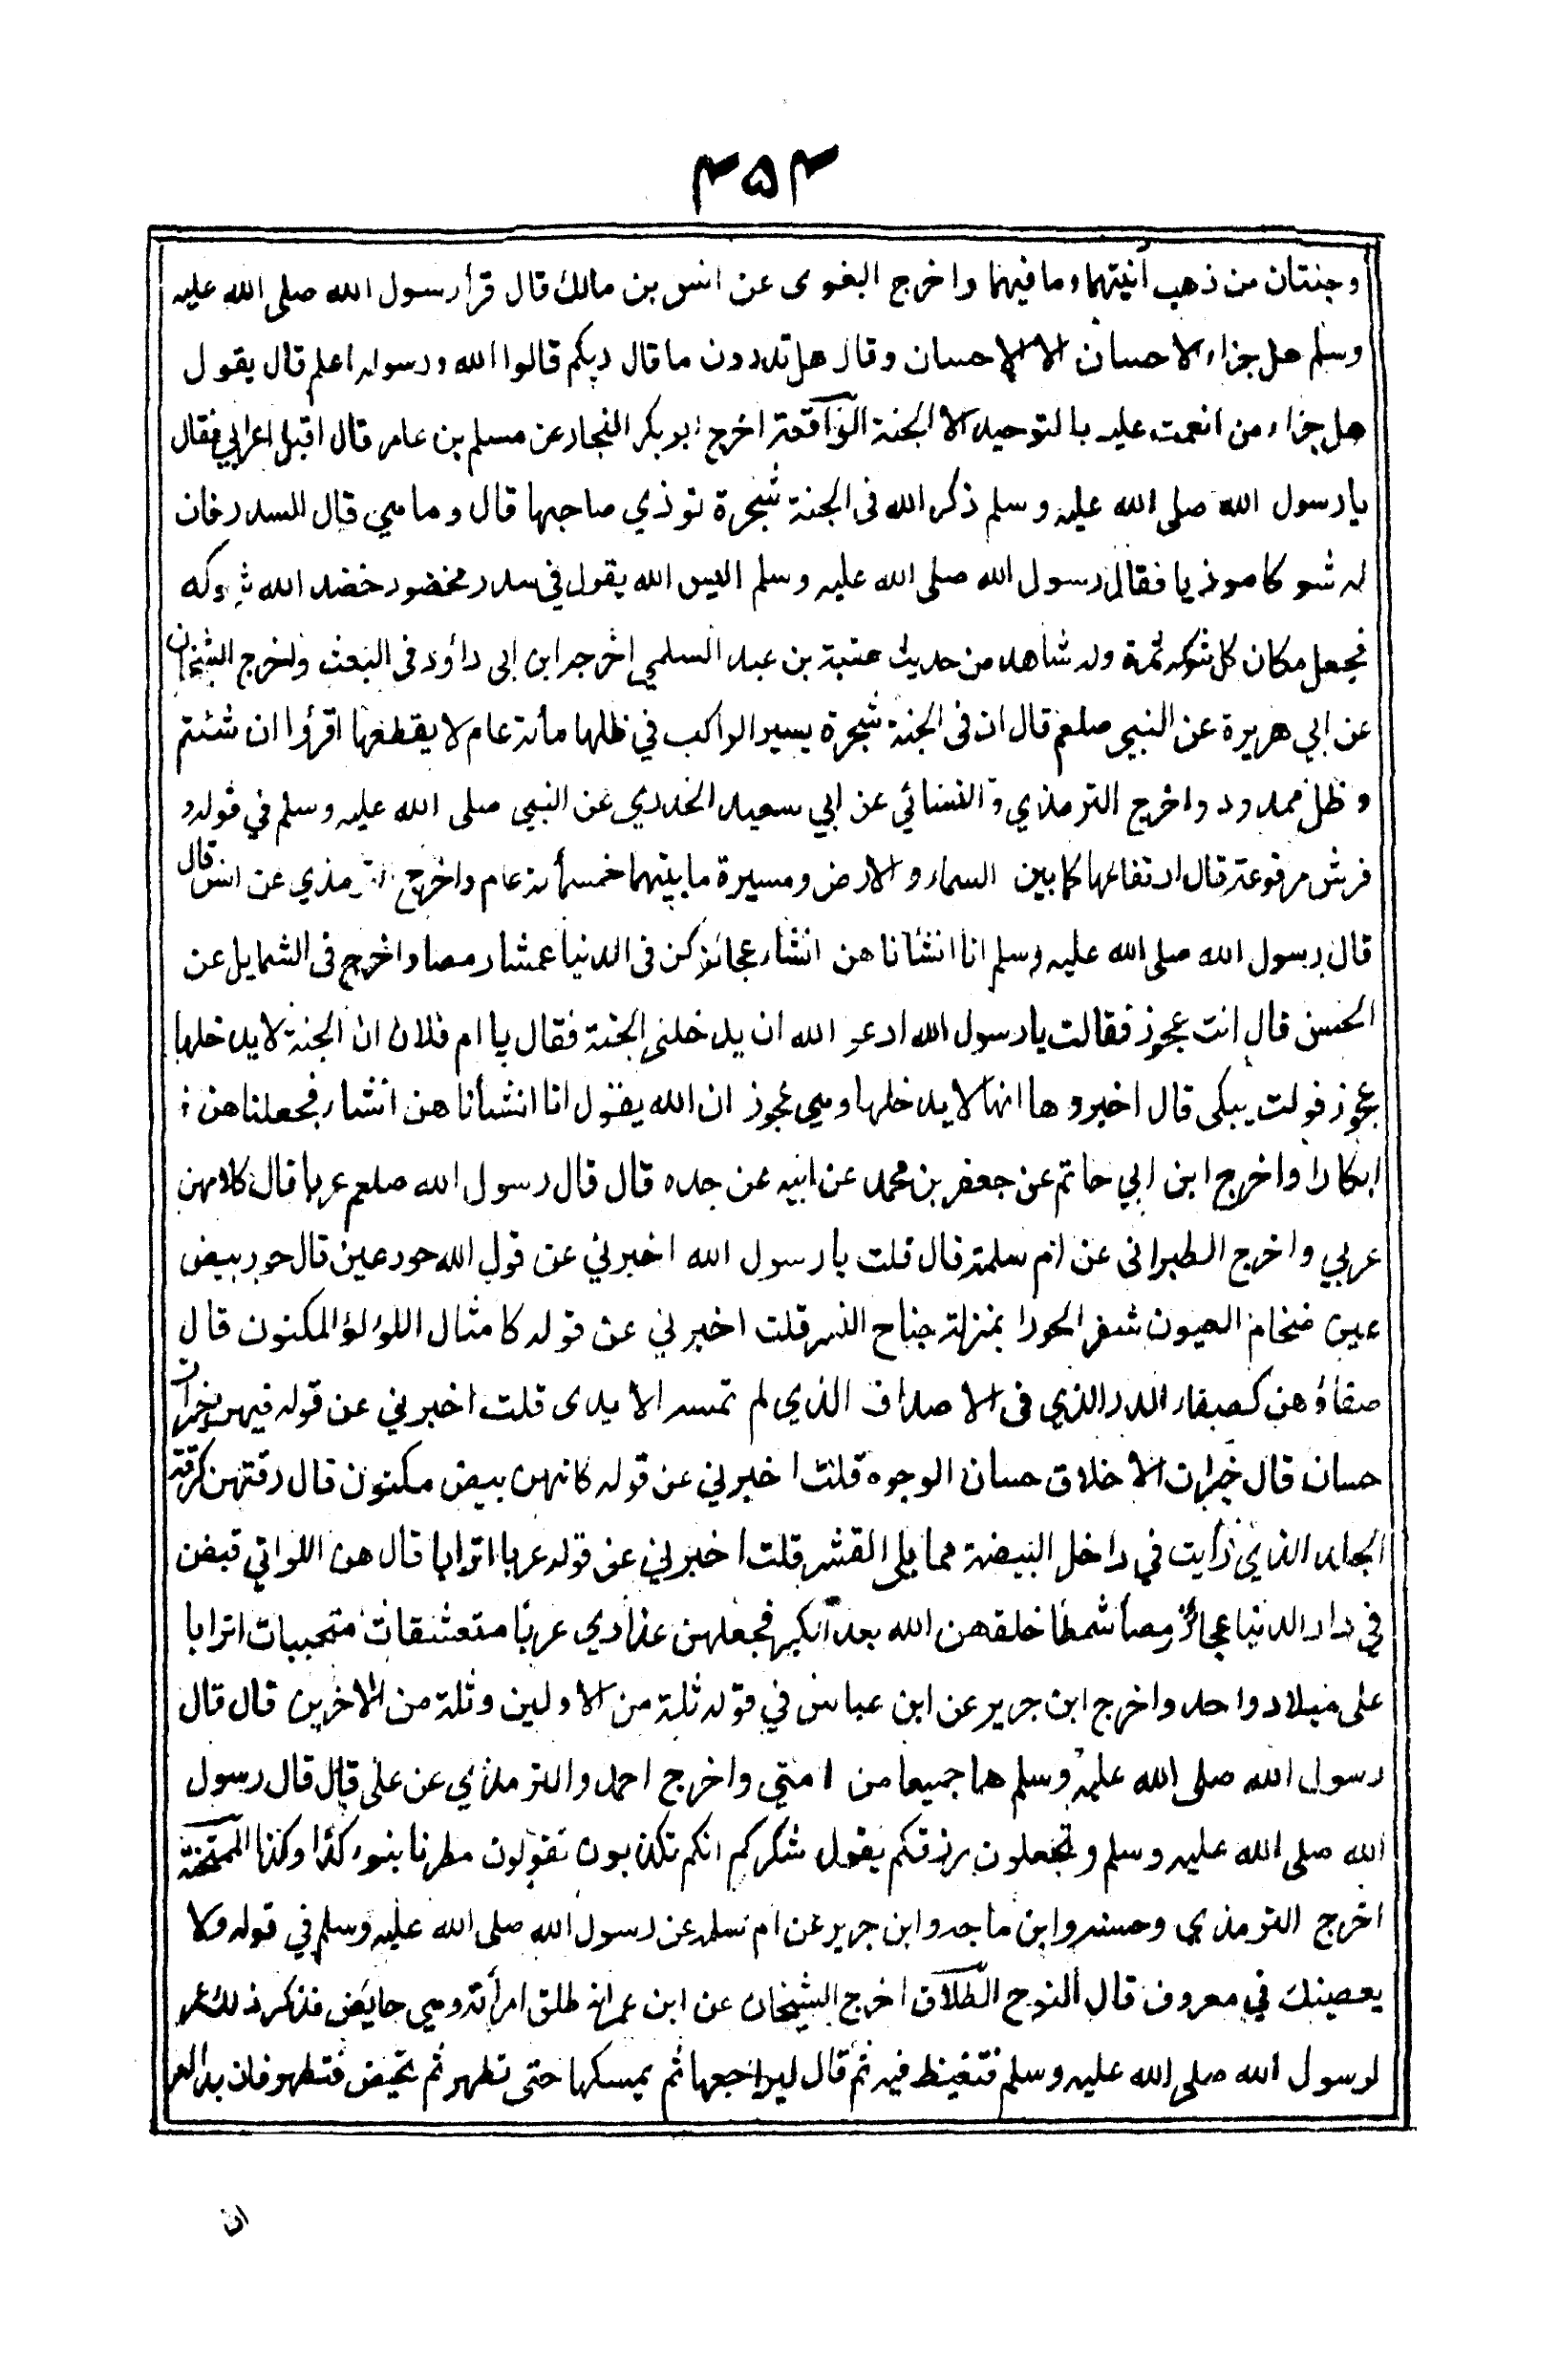 ۴۵۴
وجنتان من ذهب آنيتهما وما فيهما واخرج البغوى عن انس بن مالك قال قرأ رسول الله صلى الله عليه
وسلم هل جزاء الاحسان الا الاحسان وقال هل تدرون ما قال ربكم قالوا الله ورسوله اعلم قال يقول
هل جزاء من انعمت عليه بالتوحيد الا الجنة الواقعة اخرج ابو بكر النجار عن مسلم بن عامر قال اقبل اعرابي فقال
يا رسول الله صلى الله عليه وسلم ذكر الله فى الجنة شجرة توذي صاحبها قال وما هي قال السدر فان
له شوكا موذيا فقال رسول الله صلى الله عليه وسلم اليس الله يقول في سدر مخضود خضد الله شوكه
فجعل مكان كل شوكه ثمرة وله شاهد من حديث عتبة بن عبد السلمي اخرجه ابن ابى داؤد فى البعث واخرج الشيخان
عن ابي هريرة عن النبي صلعم قال ان فى الجنة شجرة يسير الراكب في ظلها مأته عام لا يقطعها اقرؤا ان شئتم
و ظل ممدود واخرج الترمذي و النسائي عن ابي سعيد الخدري عن النبي صلى الله عليه وسلم في قوله و
فرش مرفوعة قال ارتفاعها كما بين السماء والارض ومسيرة ما بينهما خمسمأته عام واخرج الترمذي عن انس قال
قال رسول الله صلى الله عليه وسلم انا انشأناهن انشاء عجائز كن فى الدنيا عمشا رمصا واخرج فى الشمايل عن
الحسن قال انت عجوز فقالت يا رسول الله ادعو الله ان يدخلنى الجنة فقال يا ام فلان ان الجنة لا يدخلها
عجوز فولت يبكى قال اخبروها انها لا يدخلها وهي عجوز ان الله يقول انا انشأناهن انشاء فجعلناهن ؛
ابكارا واخرج ابن ابي حاتم عن جعفر بن محمد عن ابيه عن جده قال قال رسول الله صلعم عربا قال كلامهن
عربي واخرج الطبرانى عن ام سلمة قال قلت يا رسول الله اخبرني عن قول الله حور عين قال حور بيض
عين ضخام العيون شفر الحورا بمنزلة جناح النسر قلت اخبرني عن قوله كامثال اللؤلؤ المكنون قال
صفاؤهن كصفاء الدر الذي فى الاصداف الذي لم تمسه الايدى قلت اخبرني عن قوله فيهن خيرات
حسان قال خيرات الاخلاق حسان الوجوه قلت اخبرني عن قوله كانهن بيض مكنون قال رقتهن كرقة
الجلد الذي رأيت في داخل البيضة مما يلى القشر قلت اخبرني عن قوله عربا اترابا قال هن اللواتي قبضن
في دار الدنيا عجائز رمصأ شمطا خلقهن الله بعد الكبر فجعلهن عذاري عربا متعشقات متحببات اترابا
على ميلاد واحد واخرج ابن جرير عن ابن عباس في قوله ثلة من الاولين وثلة من الاخرين قال قال
رسول الله صلى الله عليه وسلم هما جميعا من امتي واخرج احمد والترمذي عن على قال قال رسول
الله صلى الله عليه وسلم وتجعلون رزقكم يقول شكركم انكم تكذبون تقولون مطرنا بنوء كذا وكذا الممتحنة
اخرج الترمذي وحسنه وابن ماجه وابن جرير عن ام سلمه عن رسول الله صلى الله عليه وسلم في قوله ولا
يعصينك في معروف قال النوح الطلاق اخرج الشيخان عن ابن عمر انه طلق امرأته وهي حايض فذكر ذلك عمر
لرسول الله صلى الله عليه وسلم فتغيظ فيه ثم قال ليراجعها ثم يمسكها حتى تطهر ثم تحيض فتطهر فان بدا له
ان